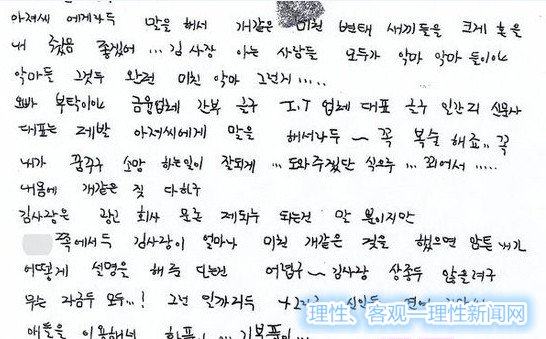 아저씨 에게라두 말을 해서 개같은 미친 변태 새끼들을 크게 혼을
내 줬음 좋겠어... 김 사장 아는 사람들 모두가 악마 악마 들이야
악마들 그것두 완전 미친 악마 그런거.....
오빠 부탁이야 금융업체 간부 글구 I.T 업체 대표 글구 인간
대표는 제발 아저씨에게 말을 해서라두~ 꼭 복수 해죠.. 꼭
내가 꿈꾸구 소망 하는일이 잘되게 ... 도와주겠단 식으루 ... 꾀어서 .....
내몸에 개같은 짓 다하구
김사장은 광고 회사 문의 제의두 되는건 말 뿐이지만
쪽에서두 김사장이 얼마나 미친 개같은 것을 했으면 암튼 내가
어떻게 설명을 해 주 어렵구~ 김사장 상종두 않을려구
우는 지금두 모두...! 그런 일까리두
얘들을 이용해서
理性、客观—理性新闻网